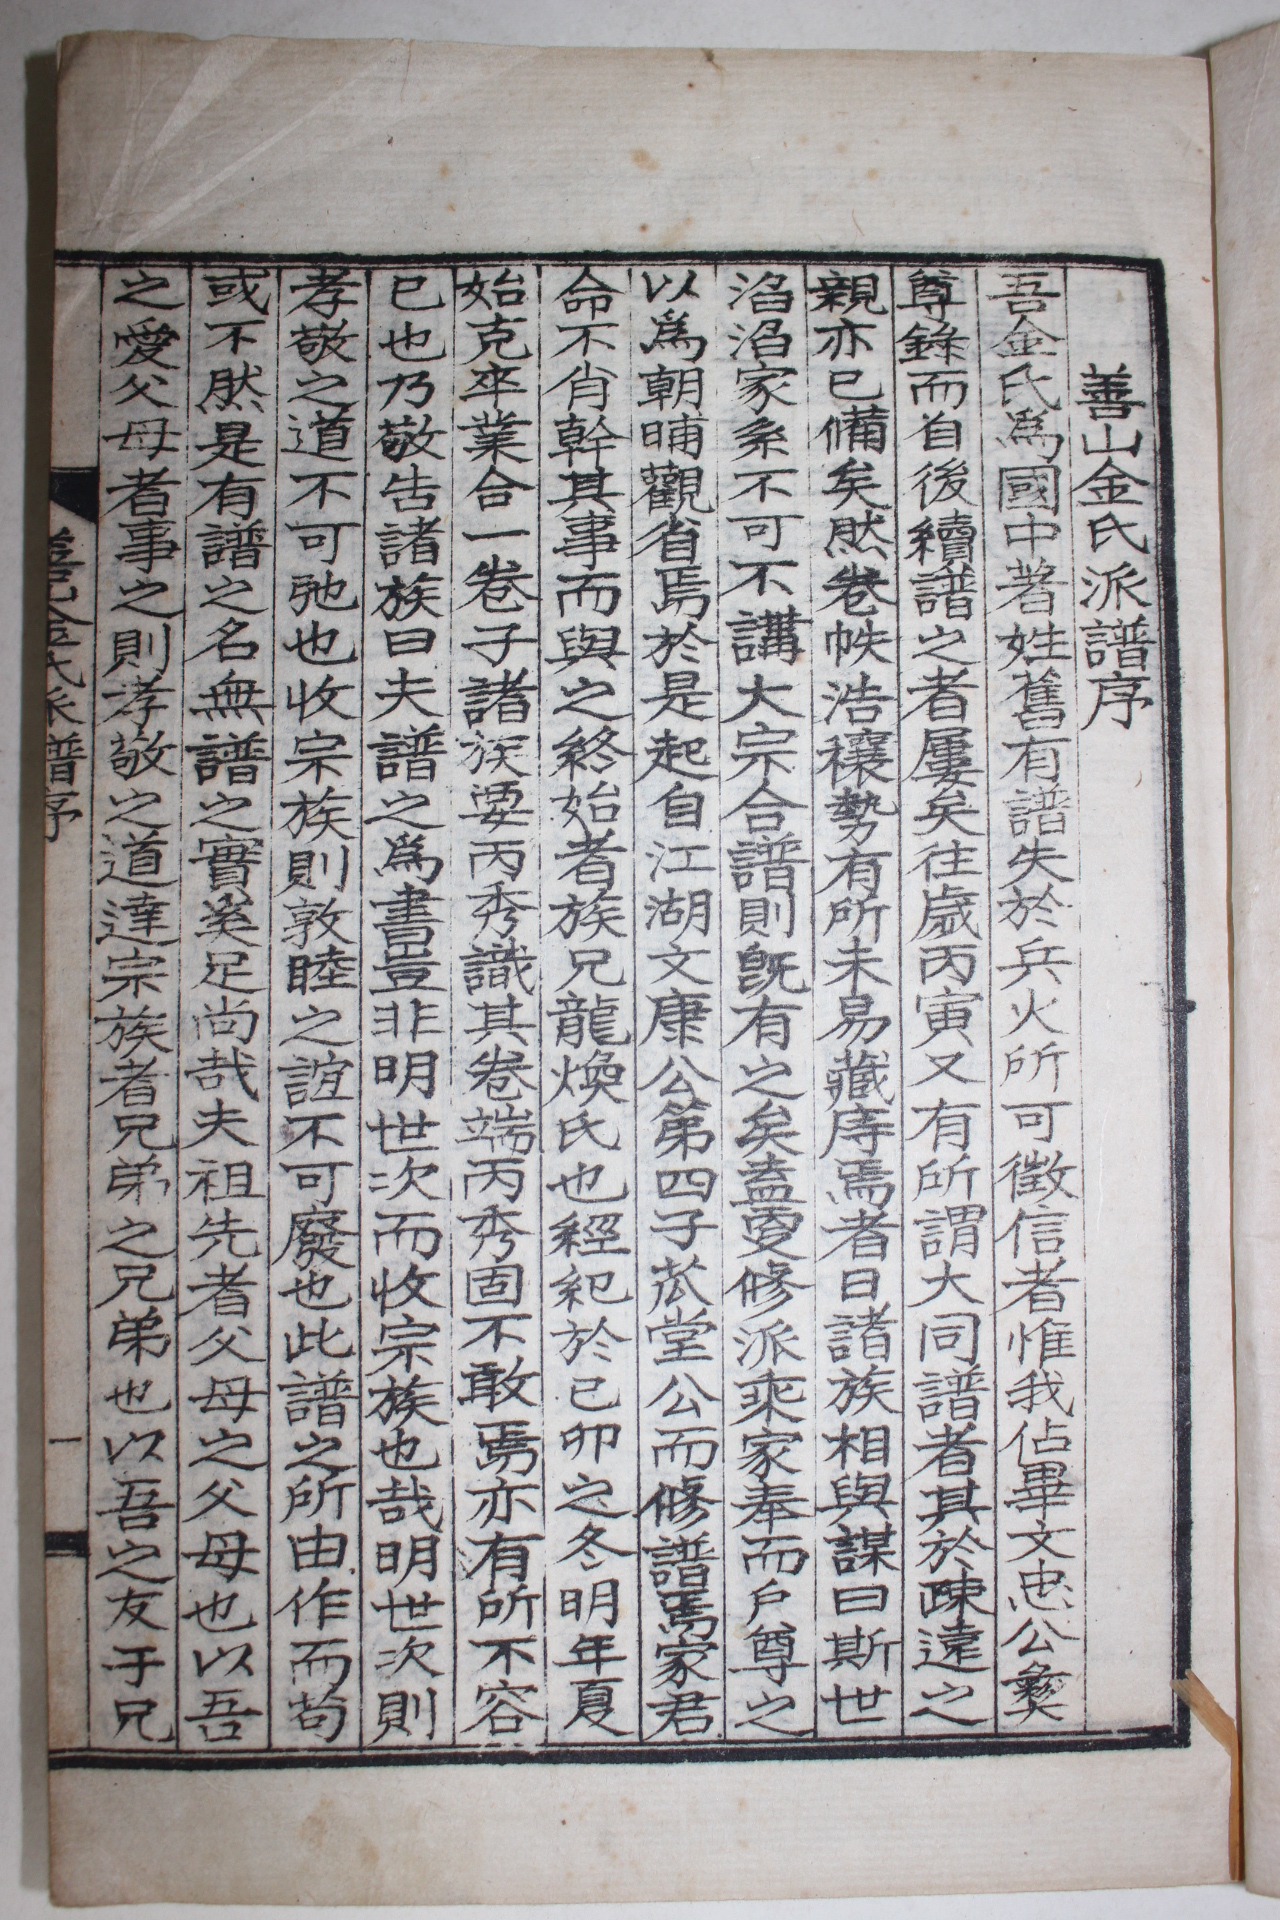 善山金氏派譜序
吾金氏爲國中著姓舊有譜失於兵火所可徵信者惟我佔畢文忠公彜
尊錄而自後續譜之者屢矣往歲丙寅又有所謂大同譜者其於疎遠之
親亦已備矣然卷帙浩穰勢有所未易藏庤焉者日諸族相與謀曰斯世
滔滔家系不可不講大宗合譜則旣有之矣盍更修派乘家奉而戶尊之
以爲朝晡觀省焉於是起自江湖文康公第四子苽堂公而修譜焉家君
命不肖幹其事而與之終始者族兄龍煥氏也經紀於己卯之冬明年夏
始克卒業合一卷子諸族要丙秀識其卷端丙秀固不敢焉亦有所不容
已也乃敬告諸族曰夫譜之爲書豈非明世次而收宗族也哉明世次則
孝敬之道不可弛也收宗族則敦睦之誼不可廢也此譜之所由作而苟
或不然是有譜之名無譜之實奚足尙哉夫祖先者父母之父母也以吾
之愛父母者事之則孝敬之道達宗族者兄弟之兄弟也以吾之友于兄
善山金氏派譜序
一